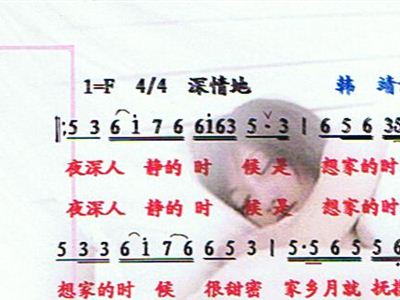 1=F 4/4 深情地 韩 靖
‖: 5 3 6 i 7 6 6i63 5 · 3 | 6 5 6 35
夜深人 静的 时 候 是 想家的
夜深人 静的 时 候 是 想家的时
5 3 3 6 i 7 6 6 5 6 3 | 5·5 6 5 5 6
想家的 时 候 很甜密 家乡月就 抚